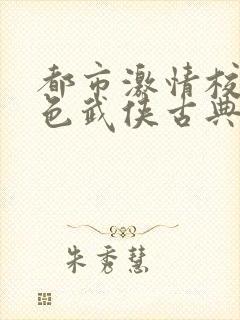 都市激情校
色武侠古典
朱秀慧